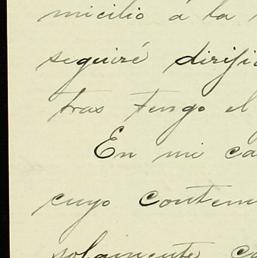 micilio á la
seguiré dirifi
tras tengo el
En mi ca
cuyo conten
solamente ca